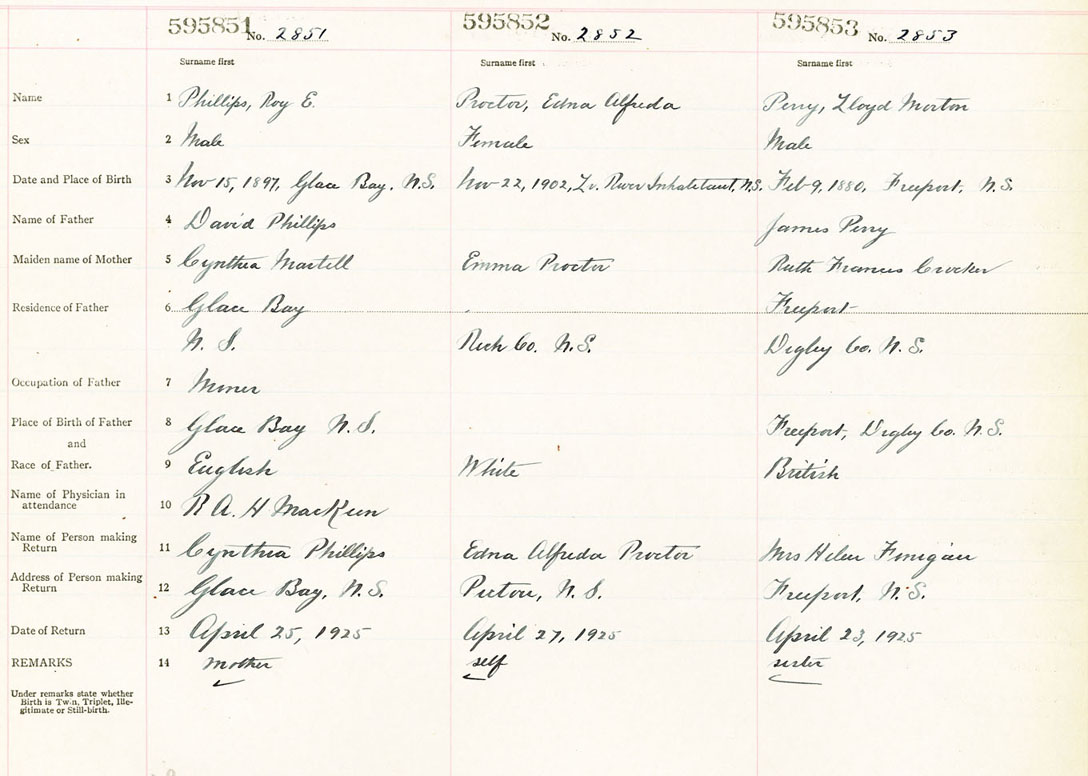 595851 No. 2851 595852 No. 2852 595853 No. 2853
Surname first Surname first Surname first
Name 1 Phillips, Roy E. Proctor, Edna Alfreda Perry, Lloyd Morton
Sex 2 Male Female Male
Date and Place of Birth 3 Nov 15, 1897, Glace Bay, N.S. Nov 22, 1902, Lr. River Inhabitant, N.S. Feb 9, 1880, Freeport, N.S.
Name of Father 4 David Phillips James Perry
Maiden name of Mother 5 Cynthia Martell Emma Proctor Ruth Francis Crocker
Residence of Father 6 Glace Bay Freeport
N. S. Rich Co. N.S. Digby Co. N.S.
Occupation of Father 7 Miner
Place of Birth of Father 8 Glace Bay N.S. Freeport, Digby Co. N.S.
and
Race of Father. 9 English White British
Name of Physician in
attendance 10 R A. H MacKeen
Name of Person making
Return 11 Cynthia Phillips Edna Alfreda Proctor Mrs Helen Finigan
Address of Person making
Return 12 Glace Bay, N.S. Pictou, N.S. Freeport, N.S.
Date of Return 13 April 25, 1925 April 27, 1925 April 23, 1925
REMARKS 14 mother self sister
Under remarks state whether
Birth is Twin, Triplet, Ille-
gitimate or Still-birth.